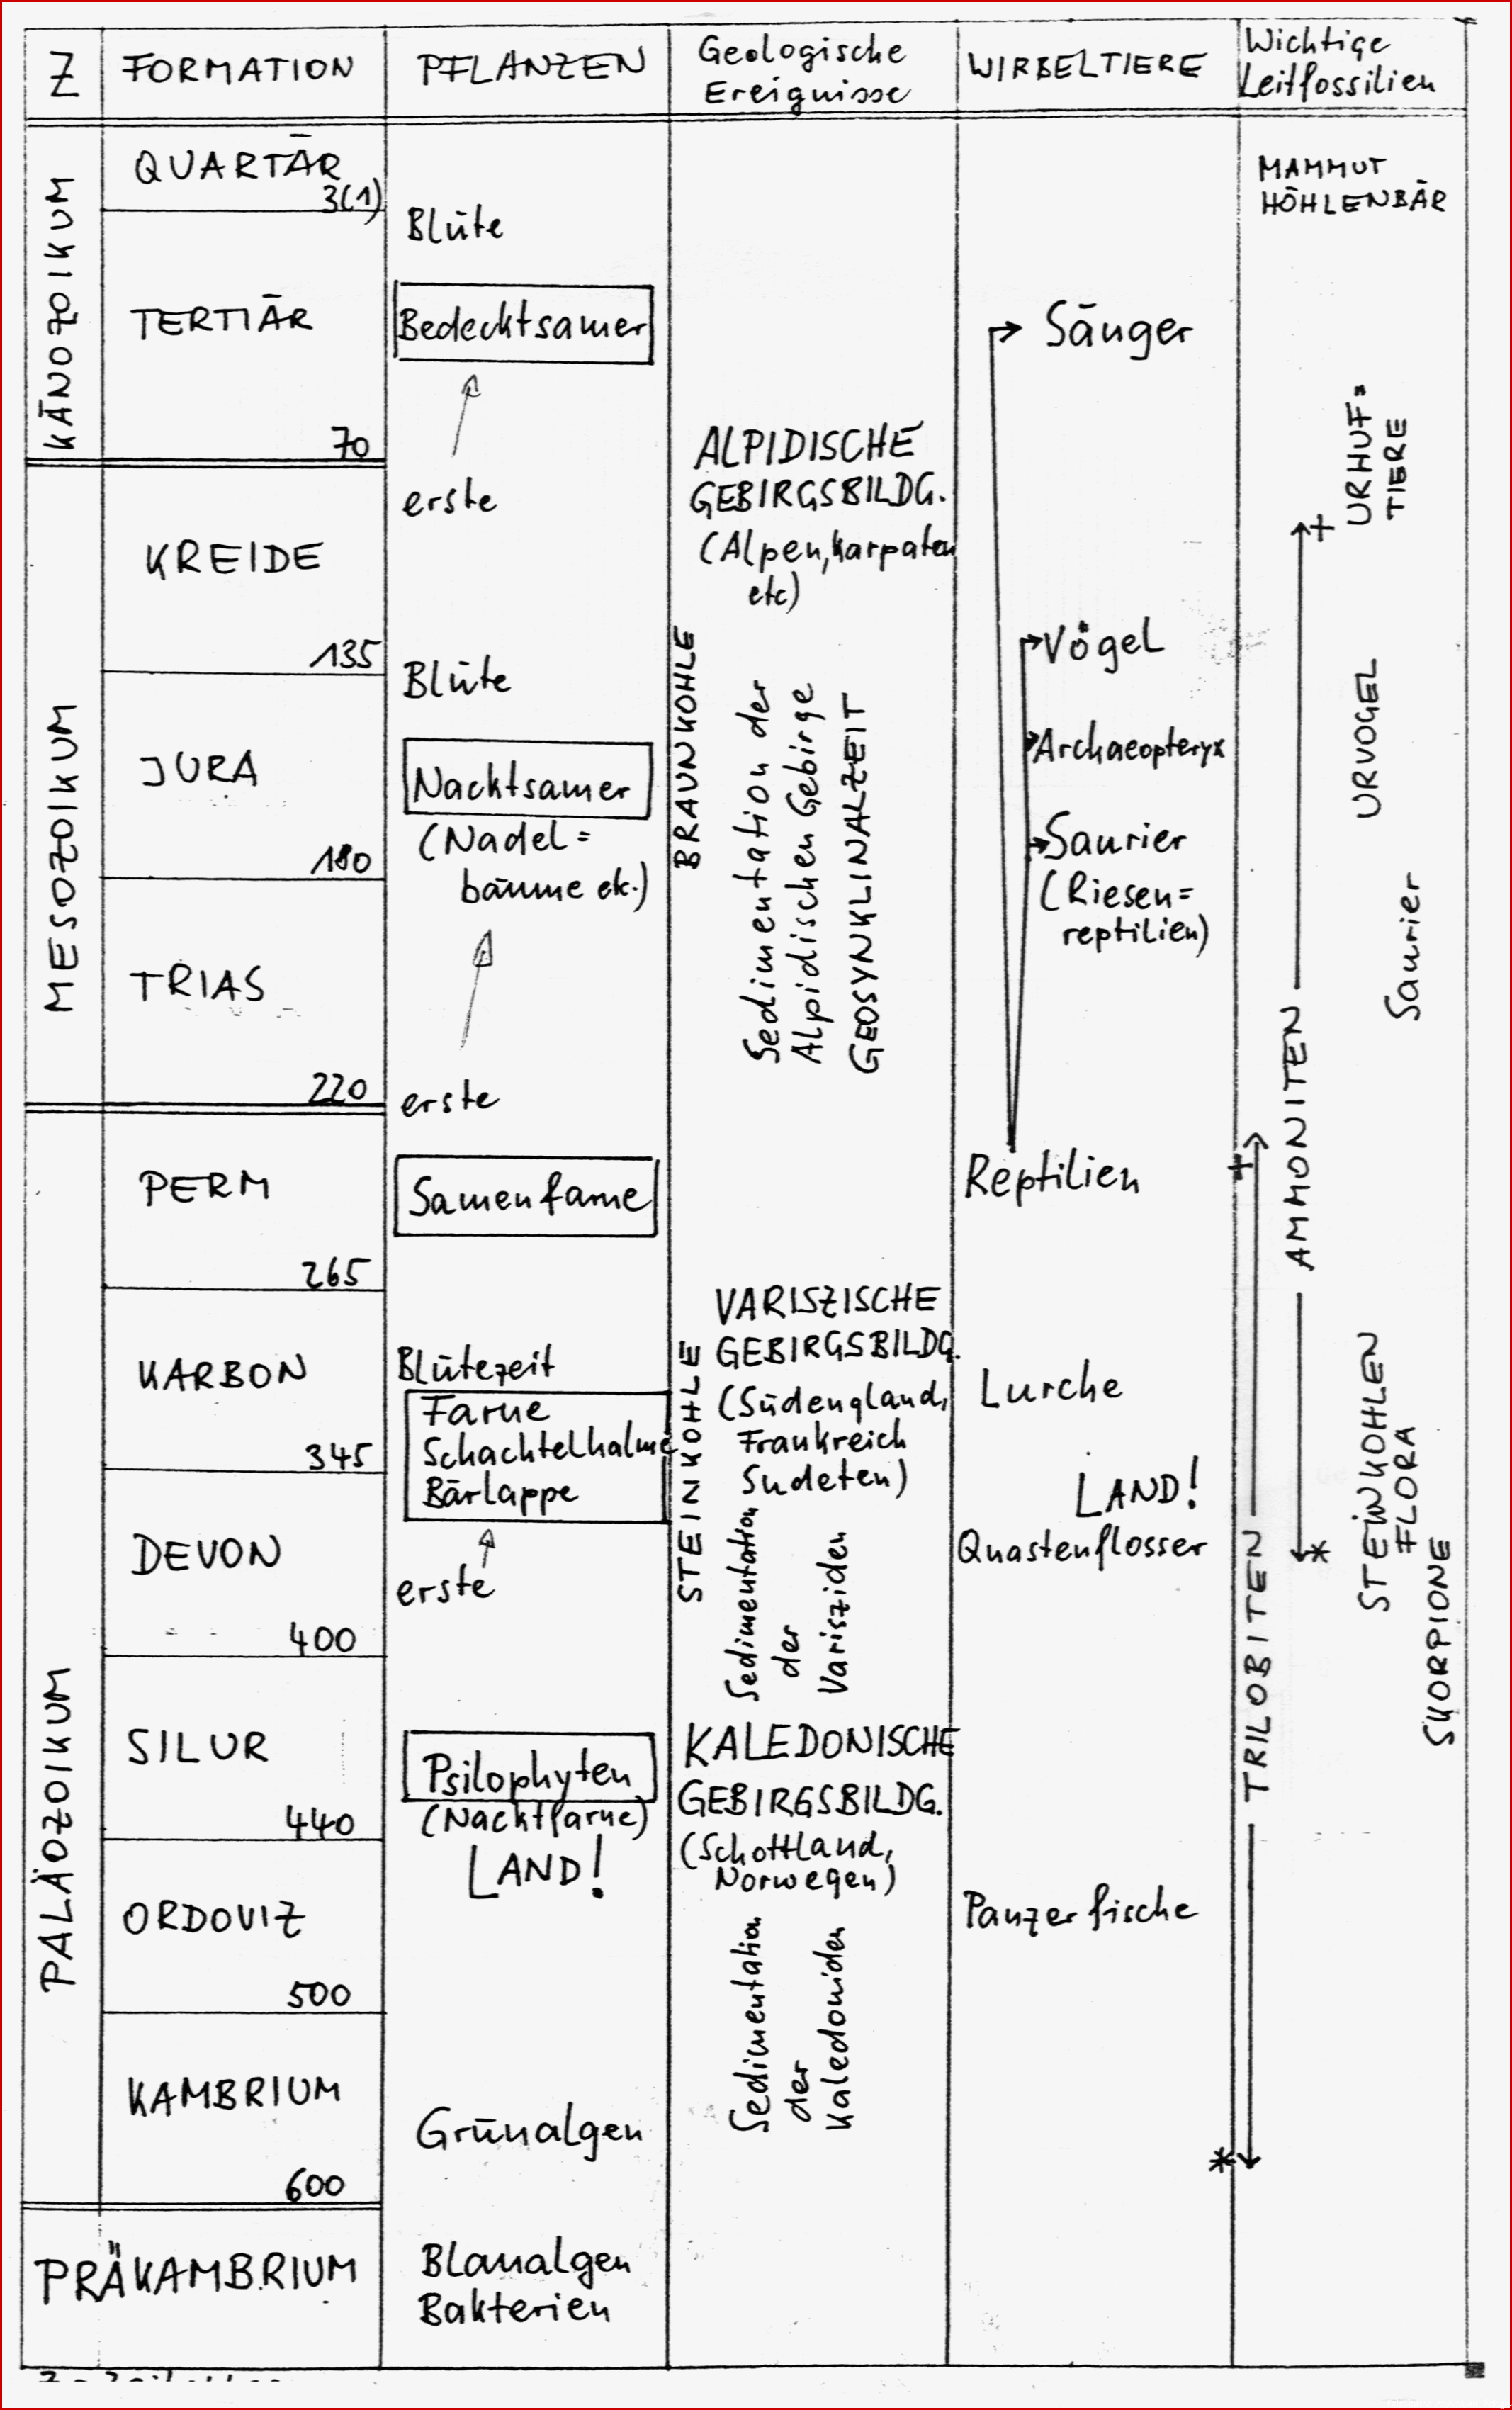 Z
FORMATION
PFLANZEN
Geologische
Ereignisse
WIRBELTIERE
Wichtige
Leitfossilien
KÄNOZOIKUM
QUARTÄR
3(1)
TERTIÄR
70
MESOZOIKUM
KREIDE
135
JURA
180
TRIAS
220
PALÄOZOIKUM
PERM
265
KARBON
345
DEVON
400
SILUR
440
ORDOVIZ
500
KAMBRIUM
600
PRÄKAMBRIUM
Blüte
Bedecktsamer
erste
Blüte
Nacktsamer
(Nadel=
bäume etc.)
erste
Samenfarne
Blütezeit
Farne
Schachtelhalme
Bärlappe
erste
Psilophyten
(Nacktfarne)
LAND!
Grünalgen
Blaualgen
Bakterien
ALPIDISCHE
GEBIRGSBILDG.
(Alpen, Karpaten
etc)
BRAUNKOHLE
Sedimentation der
Alpidischen Gebirge
GEOSYNKLINALZEIT
VARISZISCHE
GEBIRGSBILDG.
(Südengland,
Frankreich
Sudeten)
STEINKOHLE
Sedimentation
der
Varisziden
KALEDONISCHE
GEBIRGSBILDG.
(Schottland,
Norwegen)
Sedimentation
der
Kaledoniden
Säuger
Vögel
Archaeopteryx
Saurier
(Riesen=
reptilien)
Reptilien
Lurche
LAND!
Quastenflosser
Panzerfische
MAMMUT
HÖHLENBÄR
URHUF=
TIERE
URVOGEL
Saurier
AMMONITEN
TRILOBITEN
STEINKOHLEN
FLORA
SKORPIONE